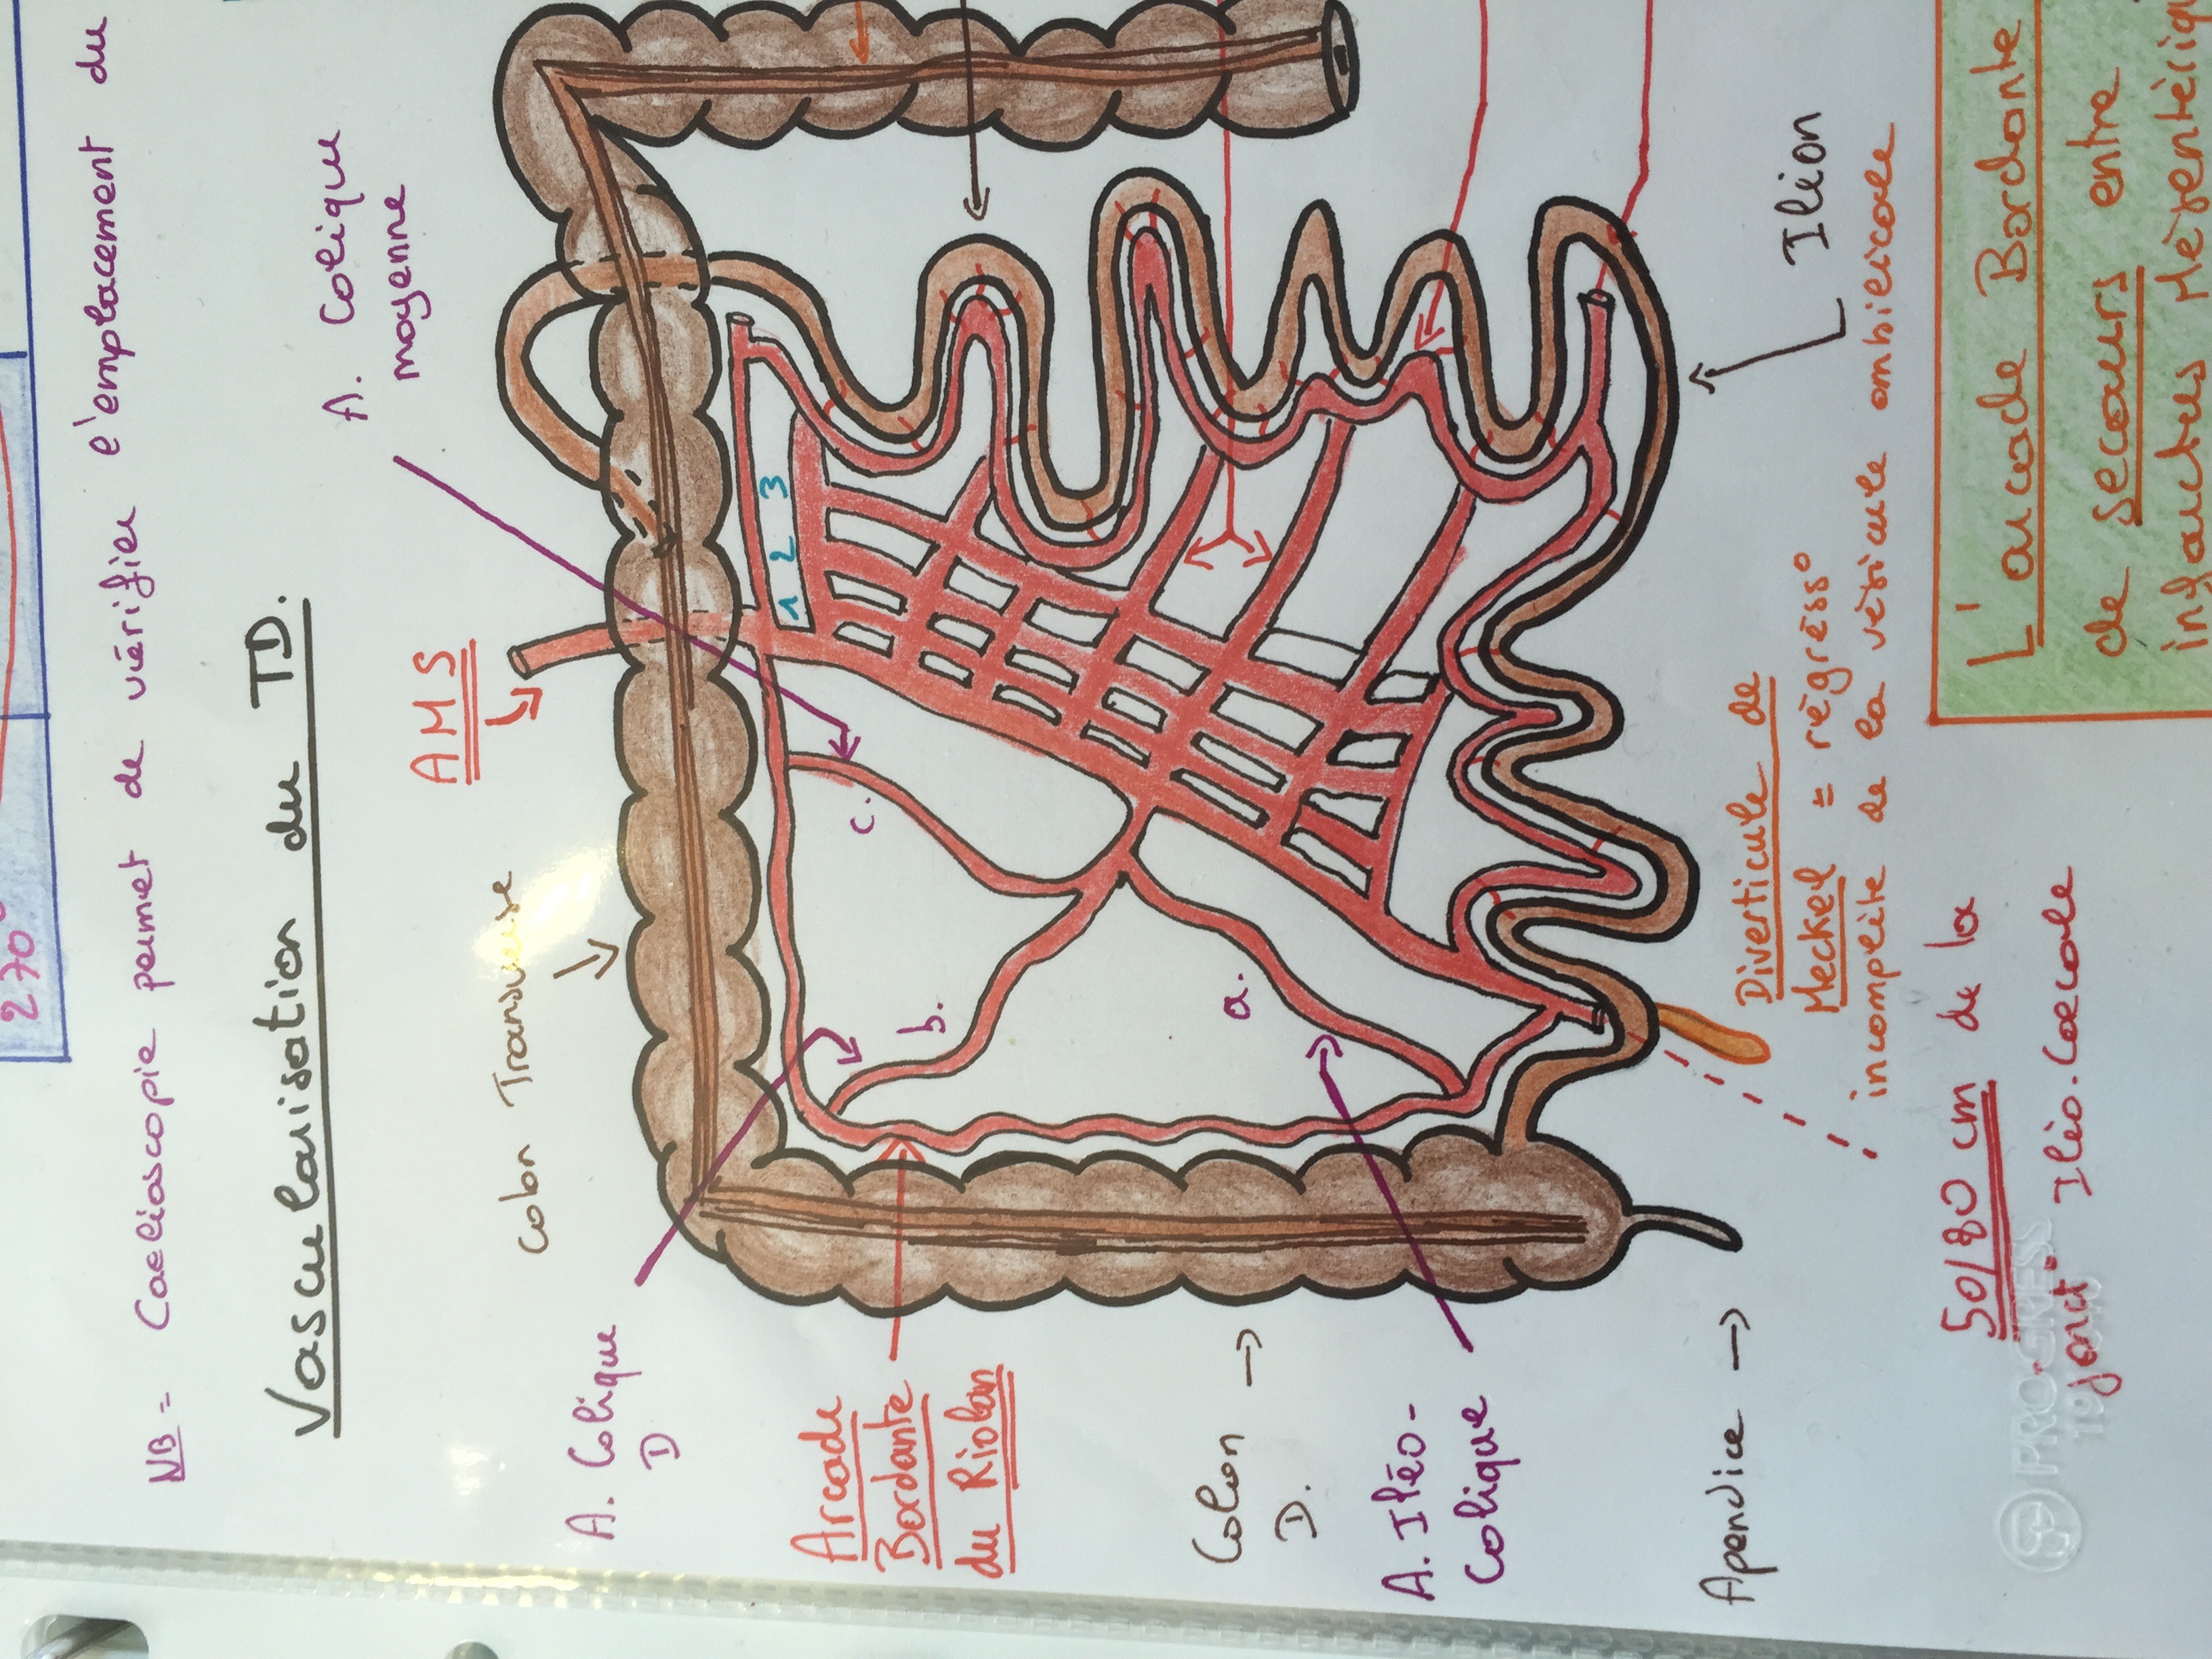 270°
NB = Coelioscopie permet de vérifier l'emplacement du
Vascularisation du TD.
A. Colique
moyenne
AMS
Colon Transverse
1 2 3
A. Colique
D
c.
b.
a.
Arcade
Bordante
du Riolan
Colon →
D.
A. Iléo-
Colique
Apendice →
Iléon
Diverticule de
Meckel = régress°
incomplète de la vésicule ombilicale
50/80 cm de la
jonct° Iléo-Coecale
L'arcade Bordante
de secours entre
infarctus Mésentériqu
PROGRESS